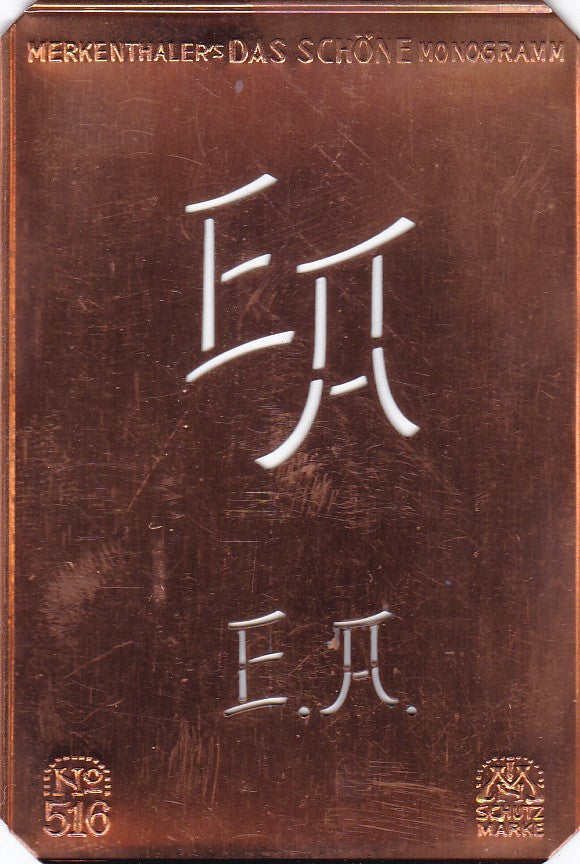 MERKENTHALER'S DAS SCHÖNE MONOGRAMM
EA
E.A.
No
516
SCHUTZ
MARKE